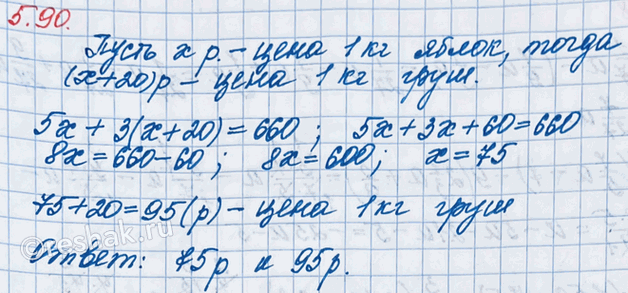 5.90.
Пусть x р. – цена 1 кг яблок, тогда
(x+20)р – цена 1 кг груш.
5x + 3(x+20) = 660 ; 5x+3x+60=660
8x=660–60 ; 8x=600; x=75
75+20=95(р) – цена 1 кг груш
Ответ: 75р и 95р.
©reshak.ru